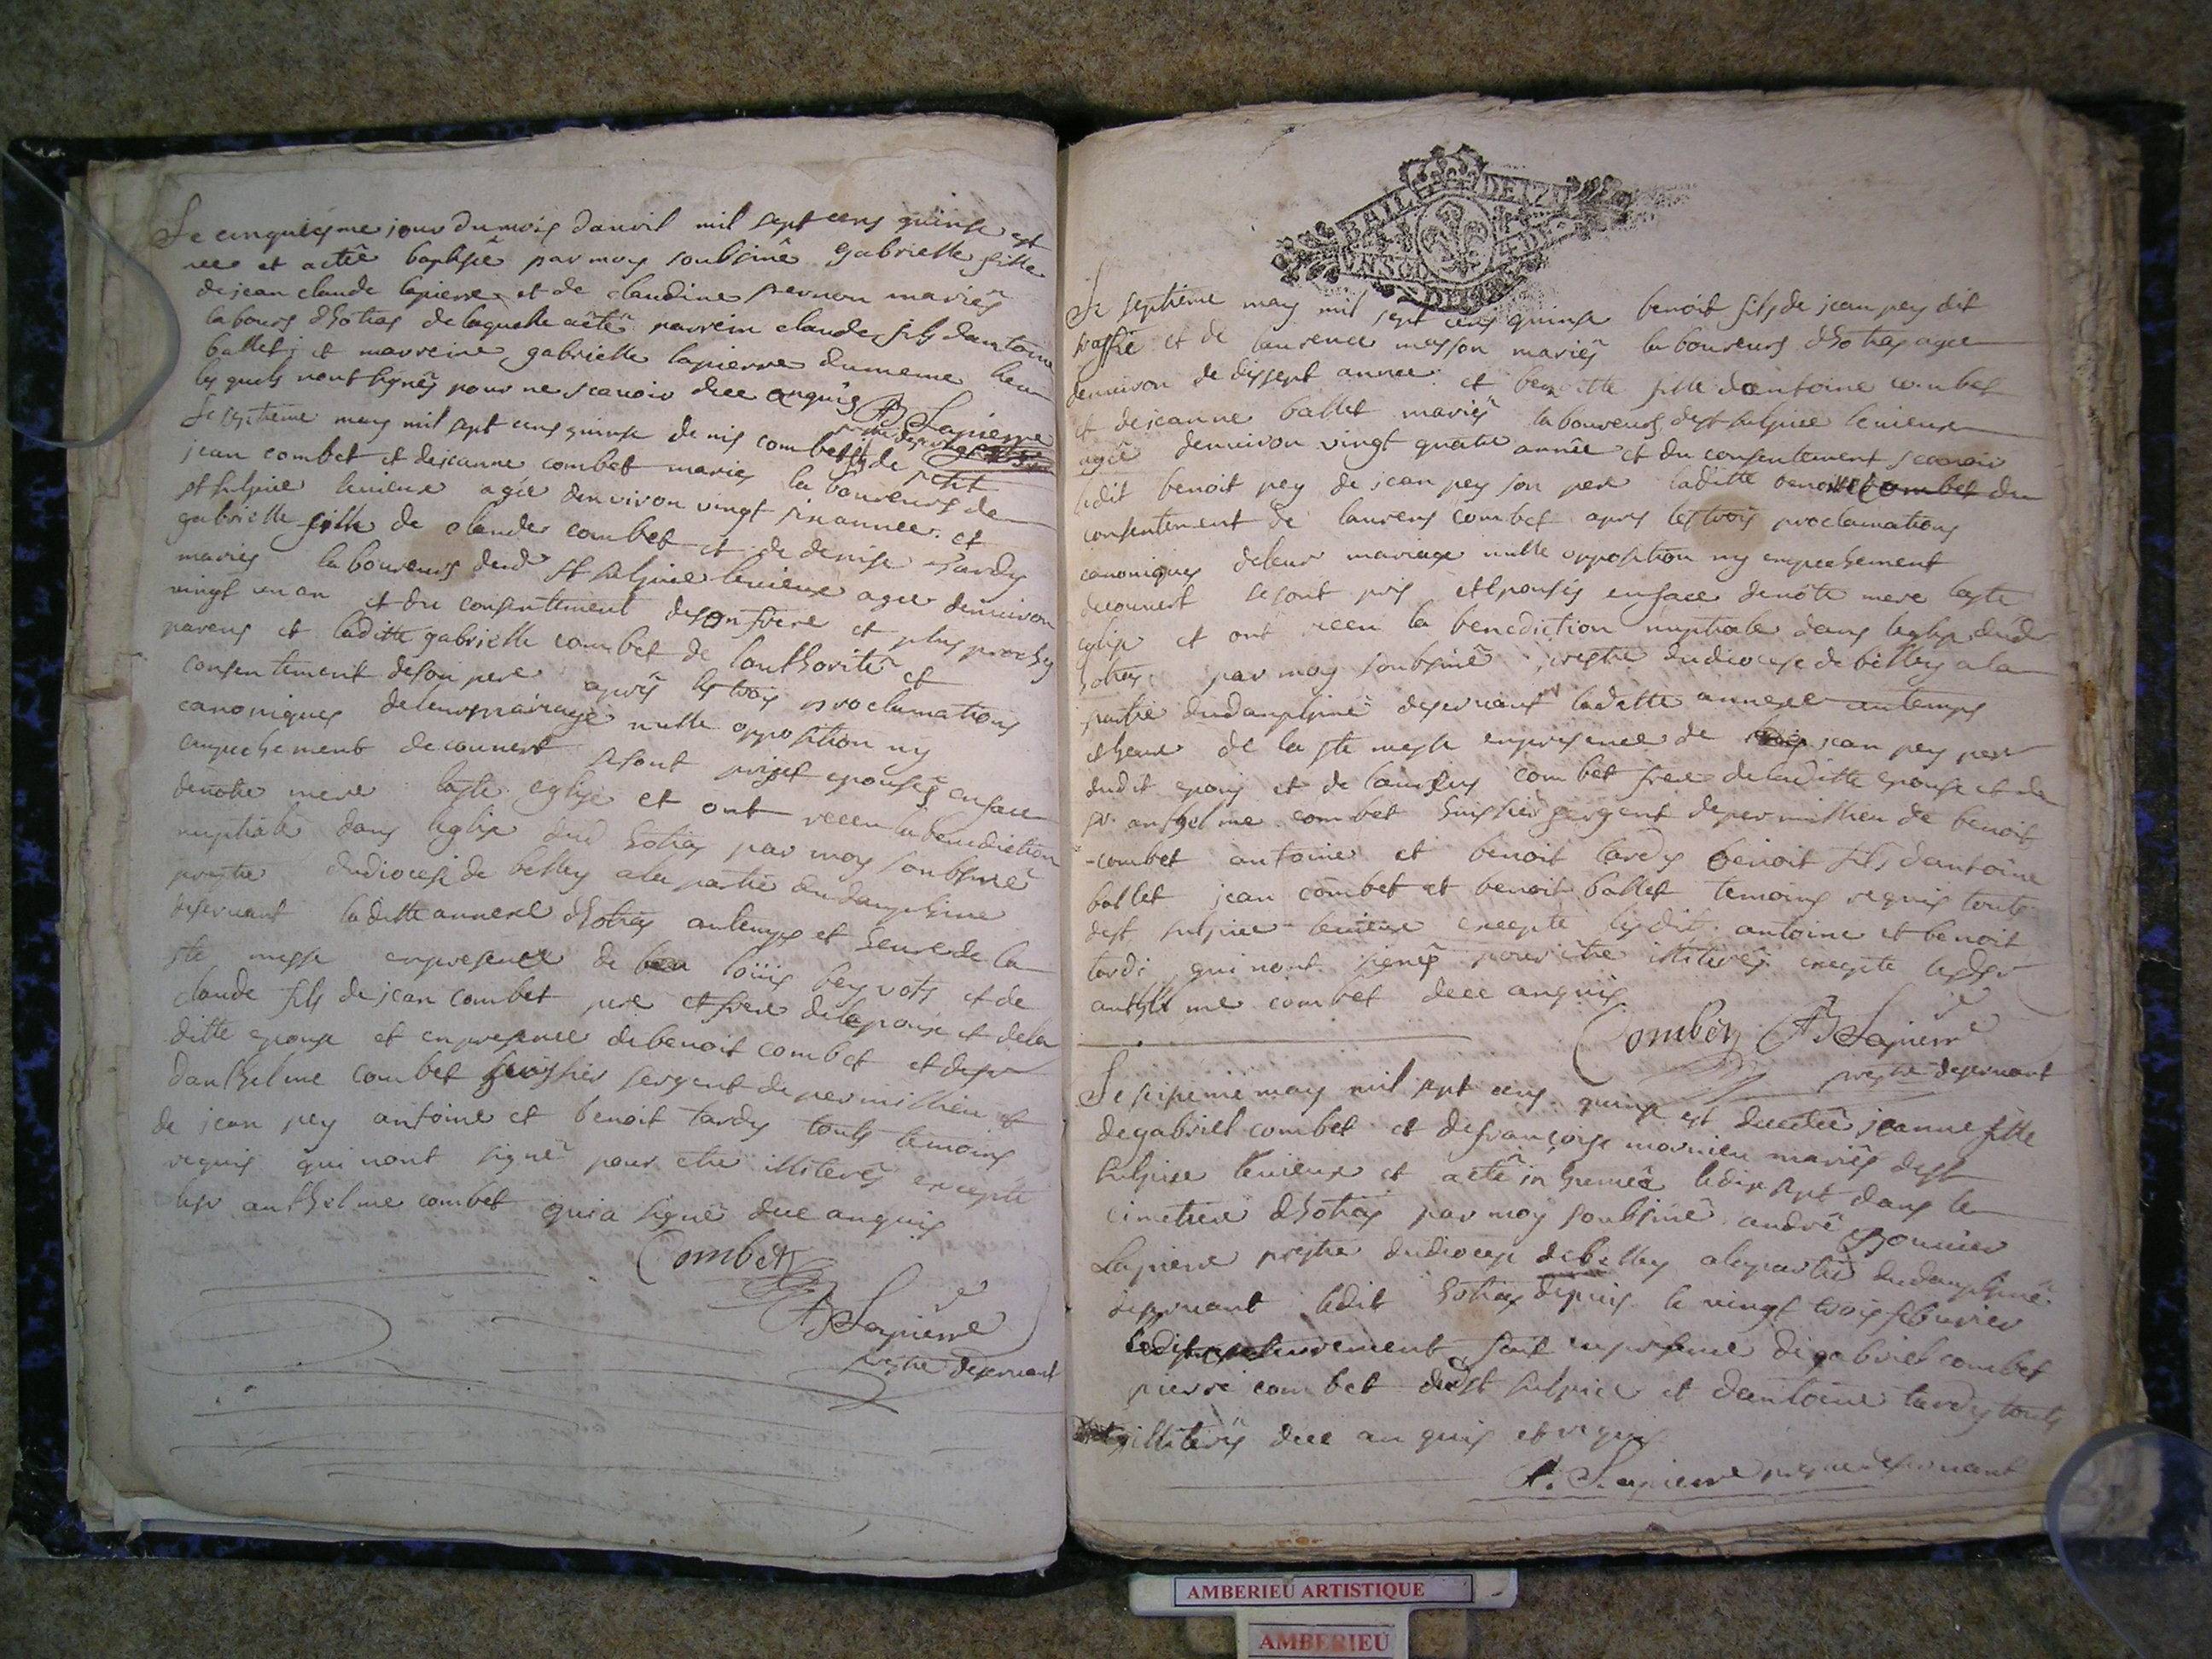 Le cinquiesme jour du mois d'auvil mil sept cens quinse est
nee et a etté baptisée par moy soubsiné gabrielle fille
de jean claude lapierre et de claudine pernon mariés
labours dhotias de laquelle a été parrein claude fils dantoine
ballet et marreine gabrielle lapierre du meme lieu
lesquels nont signés pour ne scavoir dece enquis A Lapierre
Le septieme may mil sept cens quinse denis combet fils de
jean combet et de jeanne combet mariés laboureurs de
st sulpice levieux agée denviron vingt six annees et
gabrielle fille de claude combet et de denise tardy
mariés laboureurs dud st sulpice levieux agee denviron
vingt un an et du consentement de son frere et plus proches
parens et laditte gabrielle combet de lauthorité et
consentement de son pere apres les trois proclamations
canoniques de leur mariage nulle opposition ny
empechement decouvert se sont pris et epousés en face
de notre mere la ste eglise et ont receu la benediction
nuptiale dans leglise dud hotias par moy soubsiné
prestre du diocese de belley a la partie du dauphine
deservant laditte annexe dhotias au temps et heure de la
ste messe en presence de loüis beyvots et de
claude fils de jean combet pere et frere de lepouse et de la
ditte epouse et en presence de benoit combet et de sr
danthelme combet huissier sergent de permillieu et
de jean pey antoine et benoit tardy touts temoins
requis qui nont signé pour etre illiterés excepté
le sr anthelme combet qui a signé dece enquis
Combet
A Lapierre
prestre deservant
BAIL DE
Le septieme may mil sept cens quinse benoit fils de jean pey dit
et de laurence masson mariés laboureurs dhotias agee
denviron de dissept annee et benoitte fille dantoine combet
et de jeanne ballet mariés laboureurs de st sulpice levieux
agée denviron vingt quatre année et du consentement scavoir
ledit benoit pey de jean pey son pere laditte benoitte combet du
consentement de laurens combet apres les trois proclamations
canoniques de leur mariage nulle opposition ny empechement
decouvert se sont pris et epousés en face de nôtre mere la ste
eglise et ont receu la benediction nuptiale dans leglise dud
hotias par moy soubsiné prestre du diocese de belley a la
partie du dauphiné deservant laditte annexe au temps
et heure de la ste messe en presence de jean pey pere
dudit epous et de laurens combet frere de laditte epouse et de
sr anthelme combet huissier sergent de permillieu de benoit
combet antoine et benoit tardy benoit fils dantoine
ballet jean combet et benoit ballet temoins requis touts
de st sulpice levieux excepte lesdit antoine et benoit
tardi qui nont signés pour être illiterés excepte ledsr
anthelme combet dece enquis
Combet A Lapierre
prestre deservant
Le may mil sept cens quinse est decedée jeanne fille
de gabriel combet et de françoise mornieu mariés de st
sulpice levieux et a été inhumée le dix sept dans le
cimetiere dhotias par moy soubsiné andré
Lapierre prestre du diocese de belley a la partie du dauphiné
deservant ledit hotias depuis le vingt trois febvrier
fait en presence de gabriel combet
pierre combet dud st sulpice et dantoine tardy touts
illiterés dece enquis et requis
A. Lapierre prestre deservant
AMBERIEU ARTISTIQUE
AMBERIEU